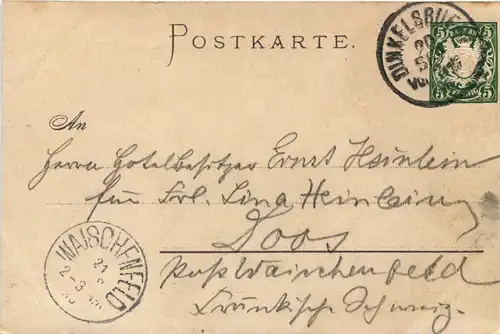 POSTKARTE.
DINKELSBÜHL
20
5
BAYERN
5 5
An
Herrn Hotelbesitzer Ernst Heinlein
für Frl. Lina Heinlein
Doos
Post Waischenfeld
Fränkische Schweiz.
WAISCHENFELD
21
2-3